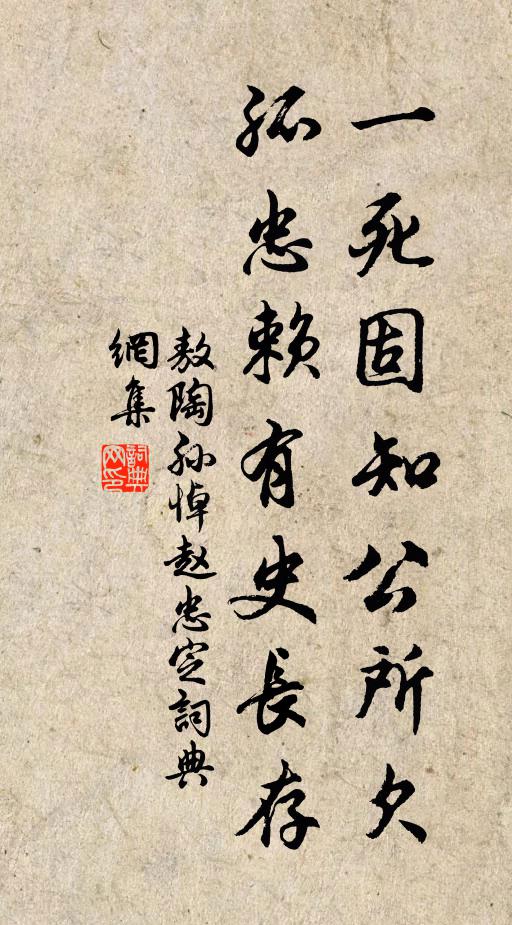 一死固知公所欠
孤忠赖有史長存
敖陶孙悼赵忠定詞典
網集
詞典
网印